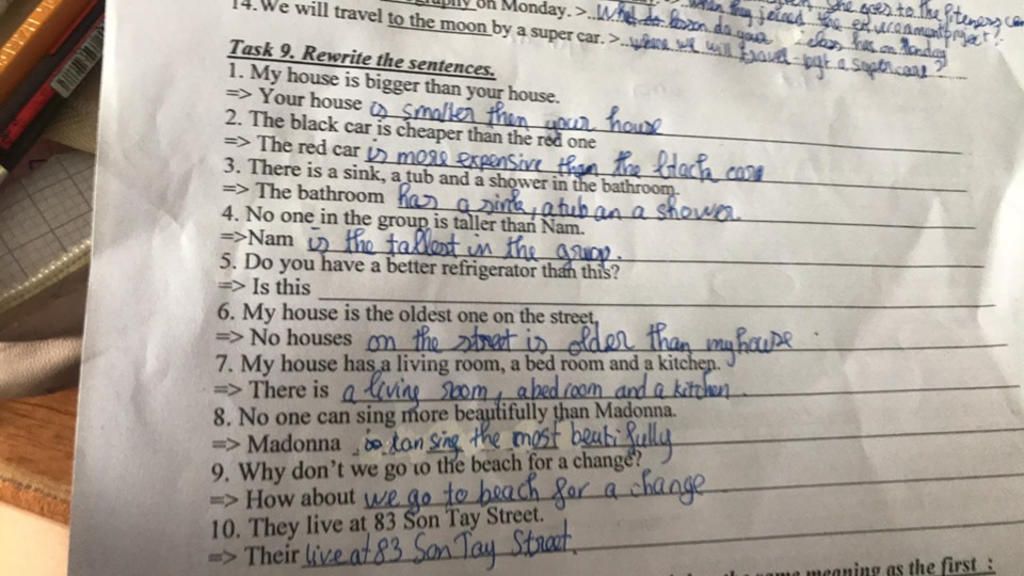 on Monday. >
14. We will travel to the moon by a super car. >
Task 9. Rewrite the sentences.
1. My house is bigger than your house.
=> Your house is smaller then your house
2. The black car is cheaper than the red one
=> The red car is more expensive than the black care
3. There is a sink, a tub and a shower in the bathroom.
=> The bathroom has a sink, a tub an a shower
4. No one in the group is taller than Nam.
=>Nam is the tallest in the group.
5. Do you have a better refrigerator than this?
=> Is this
6. My house is the oldest one on the street.
=> No houses on the street is older than my house
7. My house has a living room, a bed room and a kitchen.
=> There is a living room, a bed room and a kitchen.
8. No one can sing more beautifully than Madonna.
=> Madonna can sing the most beutifully
9. Why don't we go to the beach for a change?
=> How about we go to beach for a change
10. They live at 83 Son Tay Street.
=> Their live at 83 Son Tay Street.
same meaning as the first :